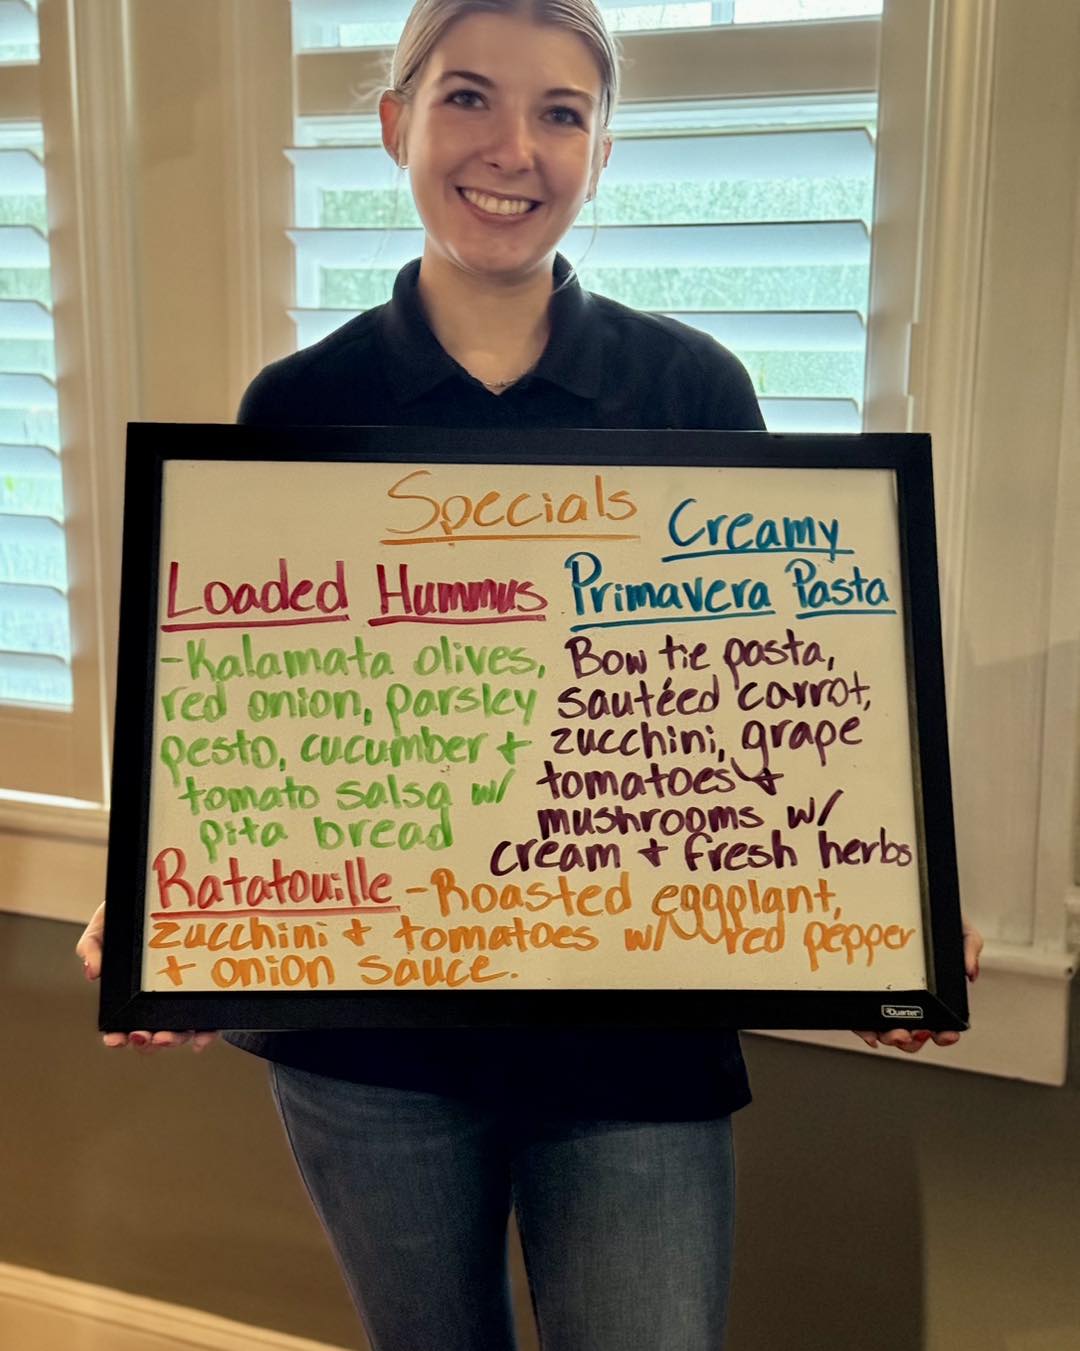 Specials
Loaded Hummus
-Kalamata olives,
red onion, parsley
pesto, cucumber +
tomato salsa w/
pita bread
Creamy
Primavera Pasta
Bow tie pasta,
sautéed carrot,
zucchini, grape
tomatoes +
mushrooms w/
cream + fresh herbs
Ratatouille -Roasted eggplant,
zucchini + tomatoes w/ red pepper
+ onion sauce.
Quartet